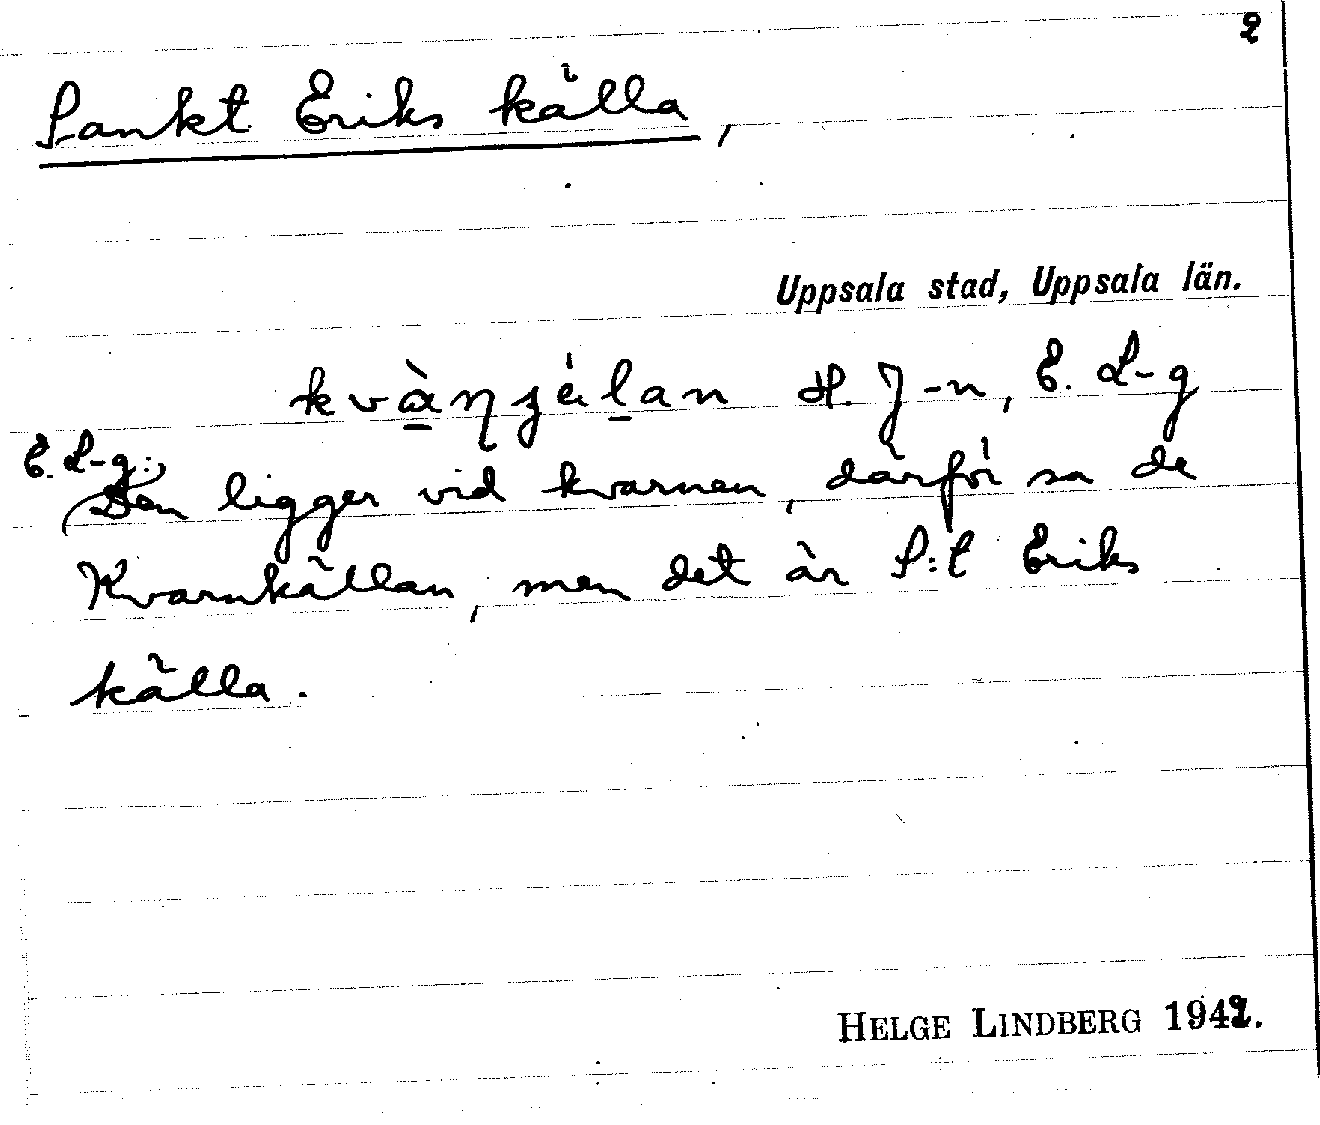 2
Sankt Eriks källa,
Uppsala stad, Uppsala län.
H. J-n, E. L-g
E. L-g:
Den ligger vid kvarnen, därför sa de
Kvarnkällan, men det är S:t Eriks
källa.
HELGE LINDBERG 1942.